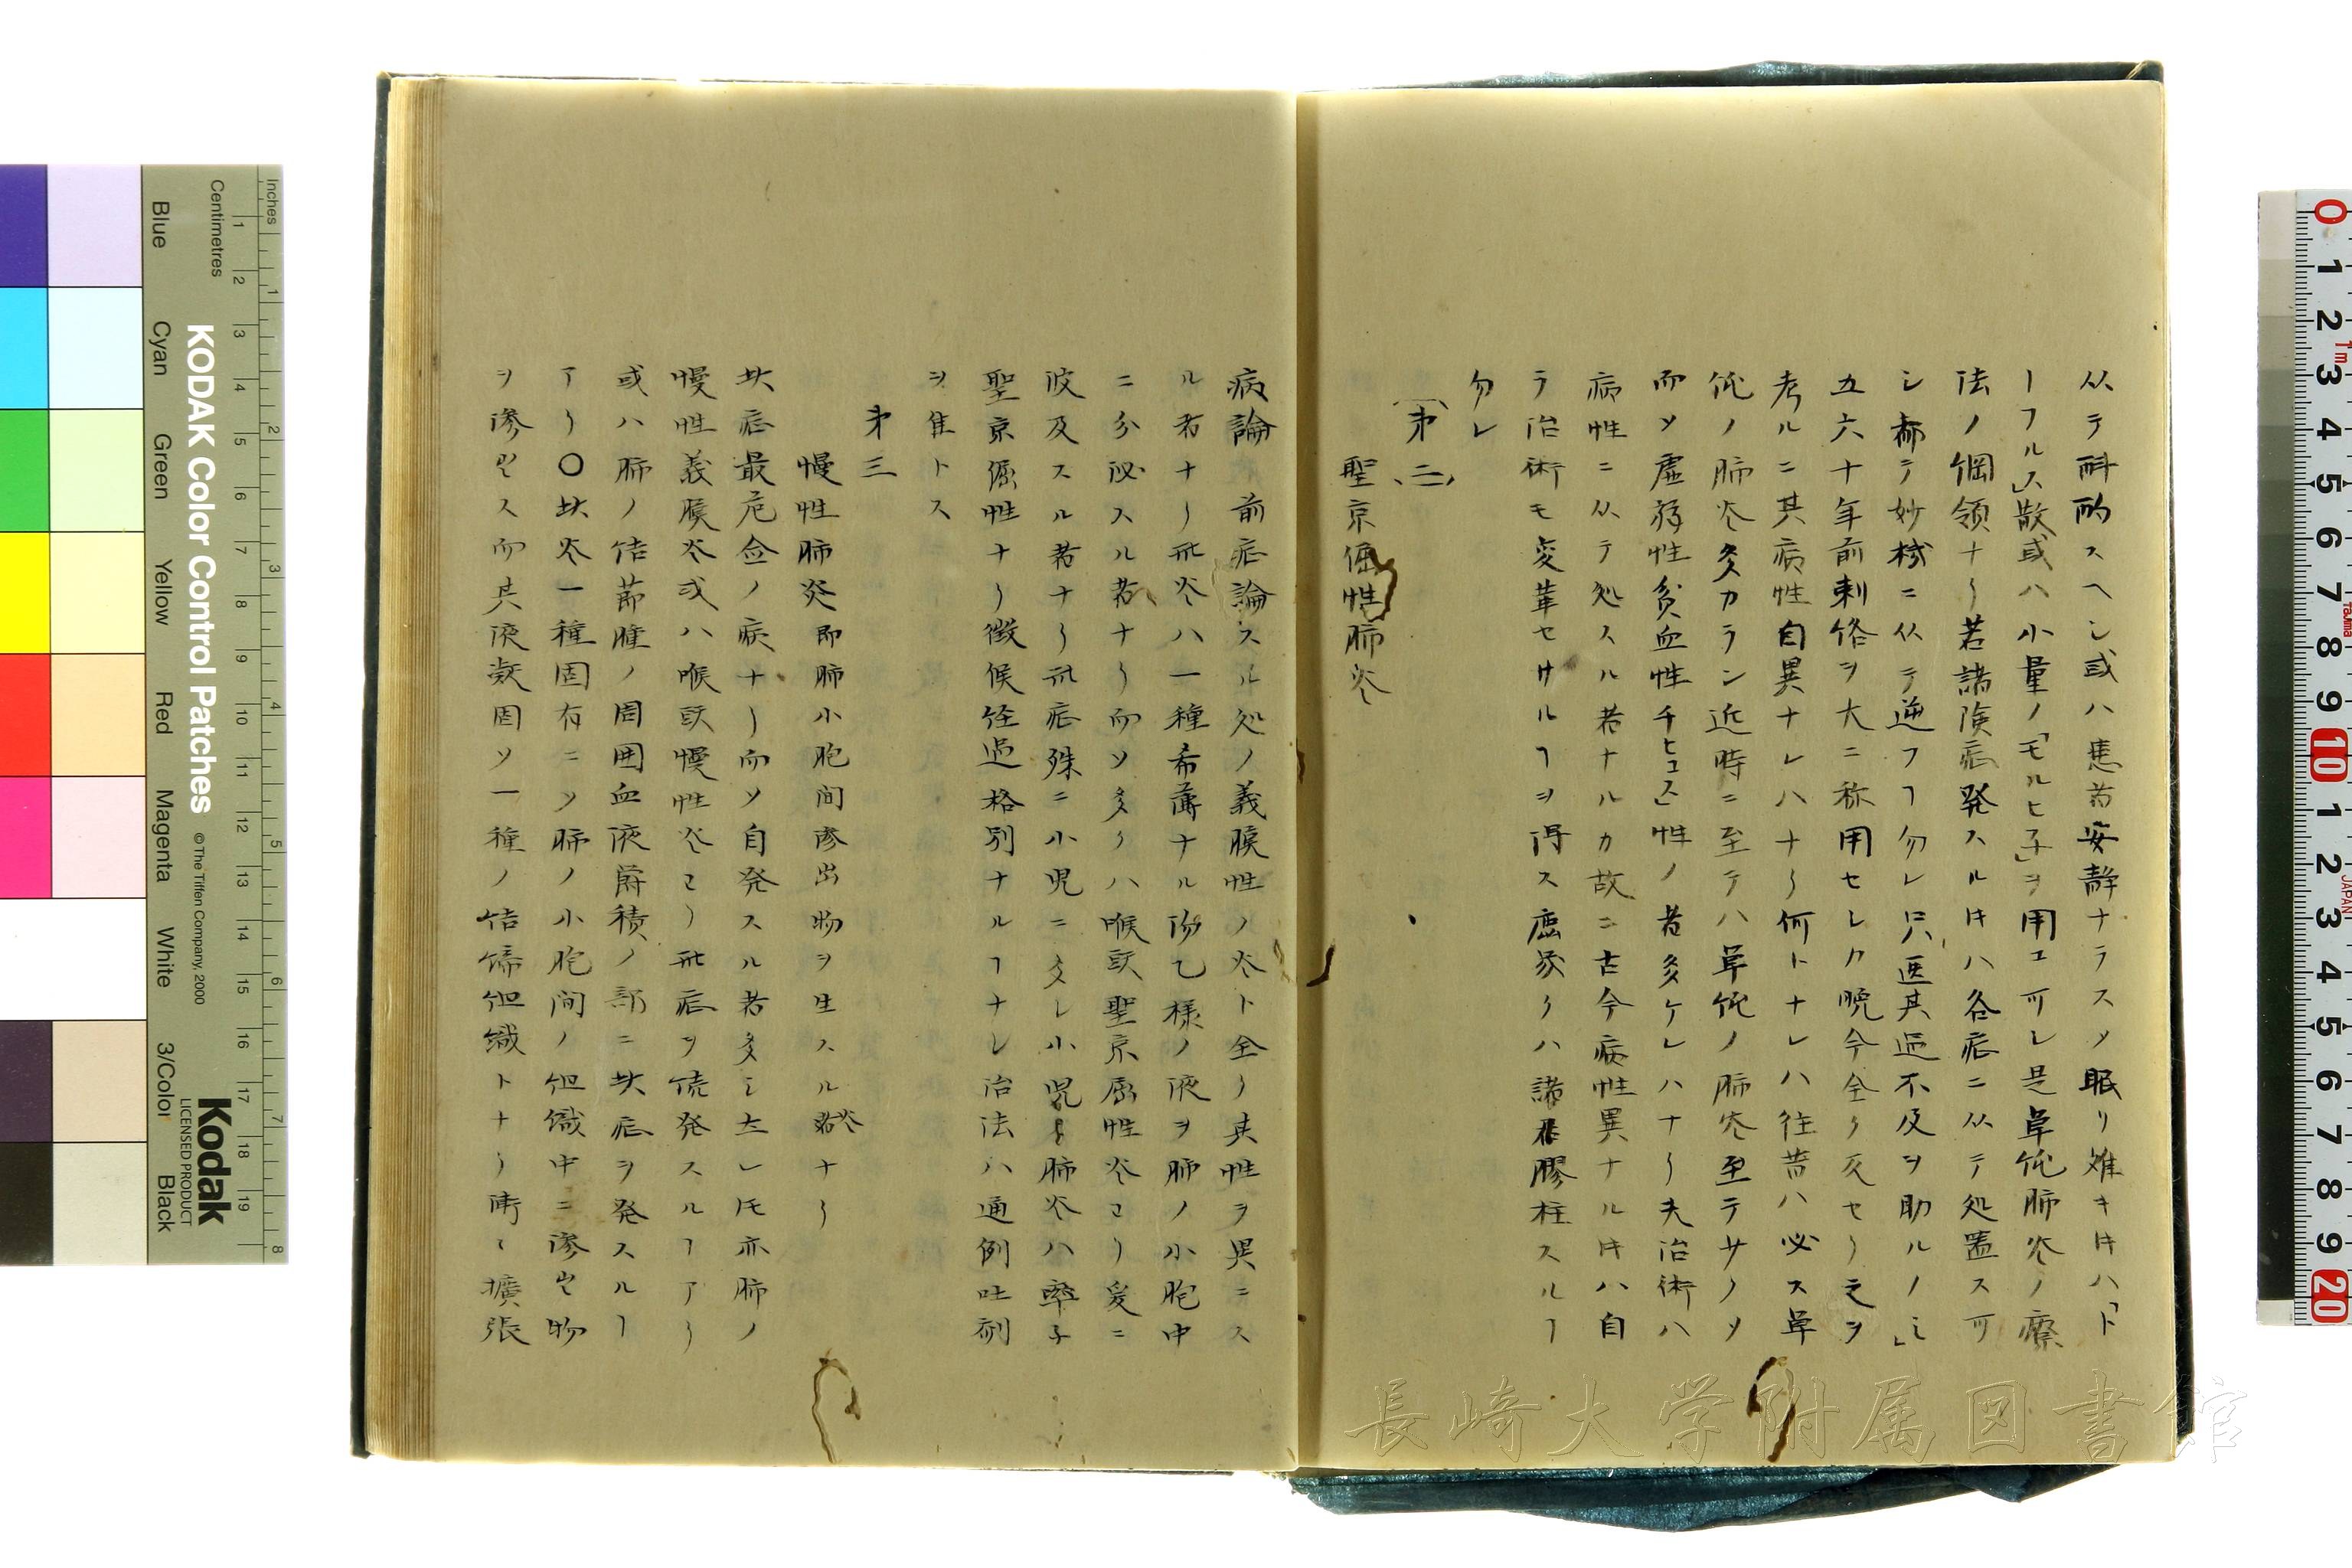 从テ斟酌スヘシ或ハ患者安静ナラスメ眠リ難キ𪜈ハ「ト
ーフル」ス散或ハ小量ノ「モルヒ子」ヲ用ユ可レ是単純肺炎ノ療
法ノ綱領ナリ若諸険症発スル𪜈ハ各症ニ从テ処置ス可
シ都テ妙機ニ从テ逆フヿ勿レ只医其過不及ヲ助ルノミ」
五六十年前刺絡ヲ大ニ称用セレカ晩今全ク反セリ之ヲ
考ルニ其病性自異ナレハナリ何トナレハ往昔ハ必ス単
純ノ肺炎多カラン近時ニ至テハ単純ノ肺炎至テ少ノソ
而ソ虚弱性貧血性チヒュス」性ノ者多ケレハナリ夫治術ハ
病性ニ从テ処スル者ナルカ故ニ古今病性異ナル𪜈ハ自
ラ治術モ変革セサルヿヲ得ス医家リハ諸君膠柱スルヿ
勿レ
(第二)
聖京倔性肺炎
病論 前症論スル処ノ義膜性ノ炎ト全ク其性ヲ異ニス
ル者ナリ此炎ハ一種希薄ナル阭乙様ノ液ヲ肺ノ小胞中
ニ分泌スル者ナリ而ソ多クハ喉頭聖京屈性炎ヨリ爰ニ
波及スル者ナリ此症殊ニ小児ニ多レ小児ノ肺炎ハ率子
聖京倔性ナリ徴候経過格別ナルヿナレ治法ハ通例吐剤
ヲ隹トス
第三
慢性肺炎即肺小胞间滲出物ヲ生スル炎ナリ
此症最危险ノ症ナリ而ソ自発スル者多ミ左レ𪜈亦肺ノ
慢性義膜炎或ハ喉頭慢性炎ヨリ此症ヲ続発スルヿアリ
或ハ肺ノ结節腫ノ周囲血液欝積ノ部ニ此症ヲ発スルヿ
アリ〇此炎一種固有ニソ肺ノ小胞间ノ组織中ニ滲出物
ヲ滲出ス而其液凝固ソ一種ノ结締组織トナリ漸々擴張
KODAK Color Control Patches
© The Tiffen Company, 2000
Kodak
LICENSED PRODUCT
Inches
Centimetres
Blue
Cyan
Green
Yellow
Red
Magenta
White
3/Color
Black
長崎大学附属図書館